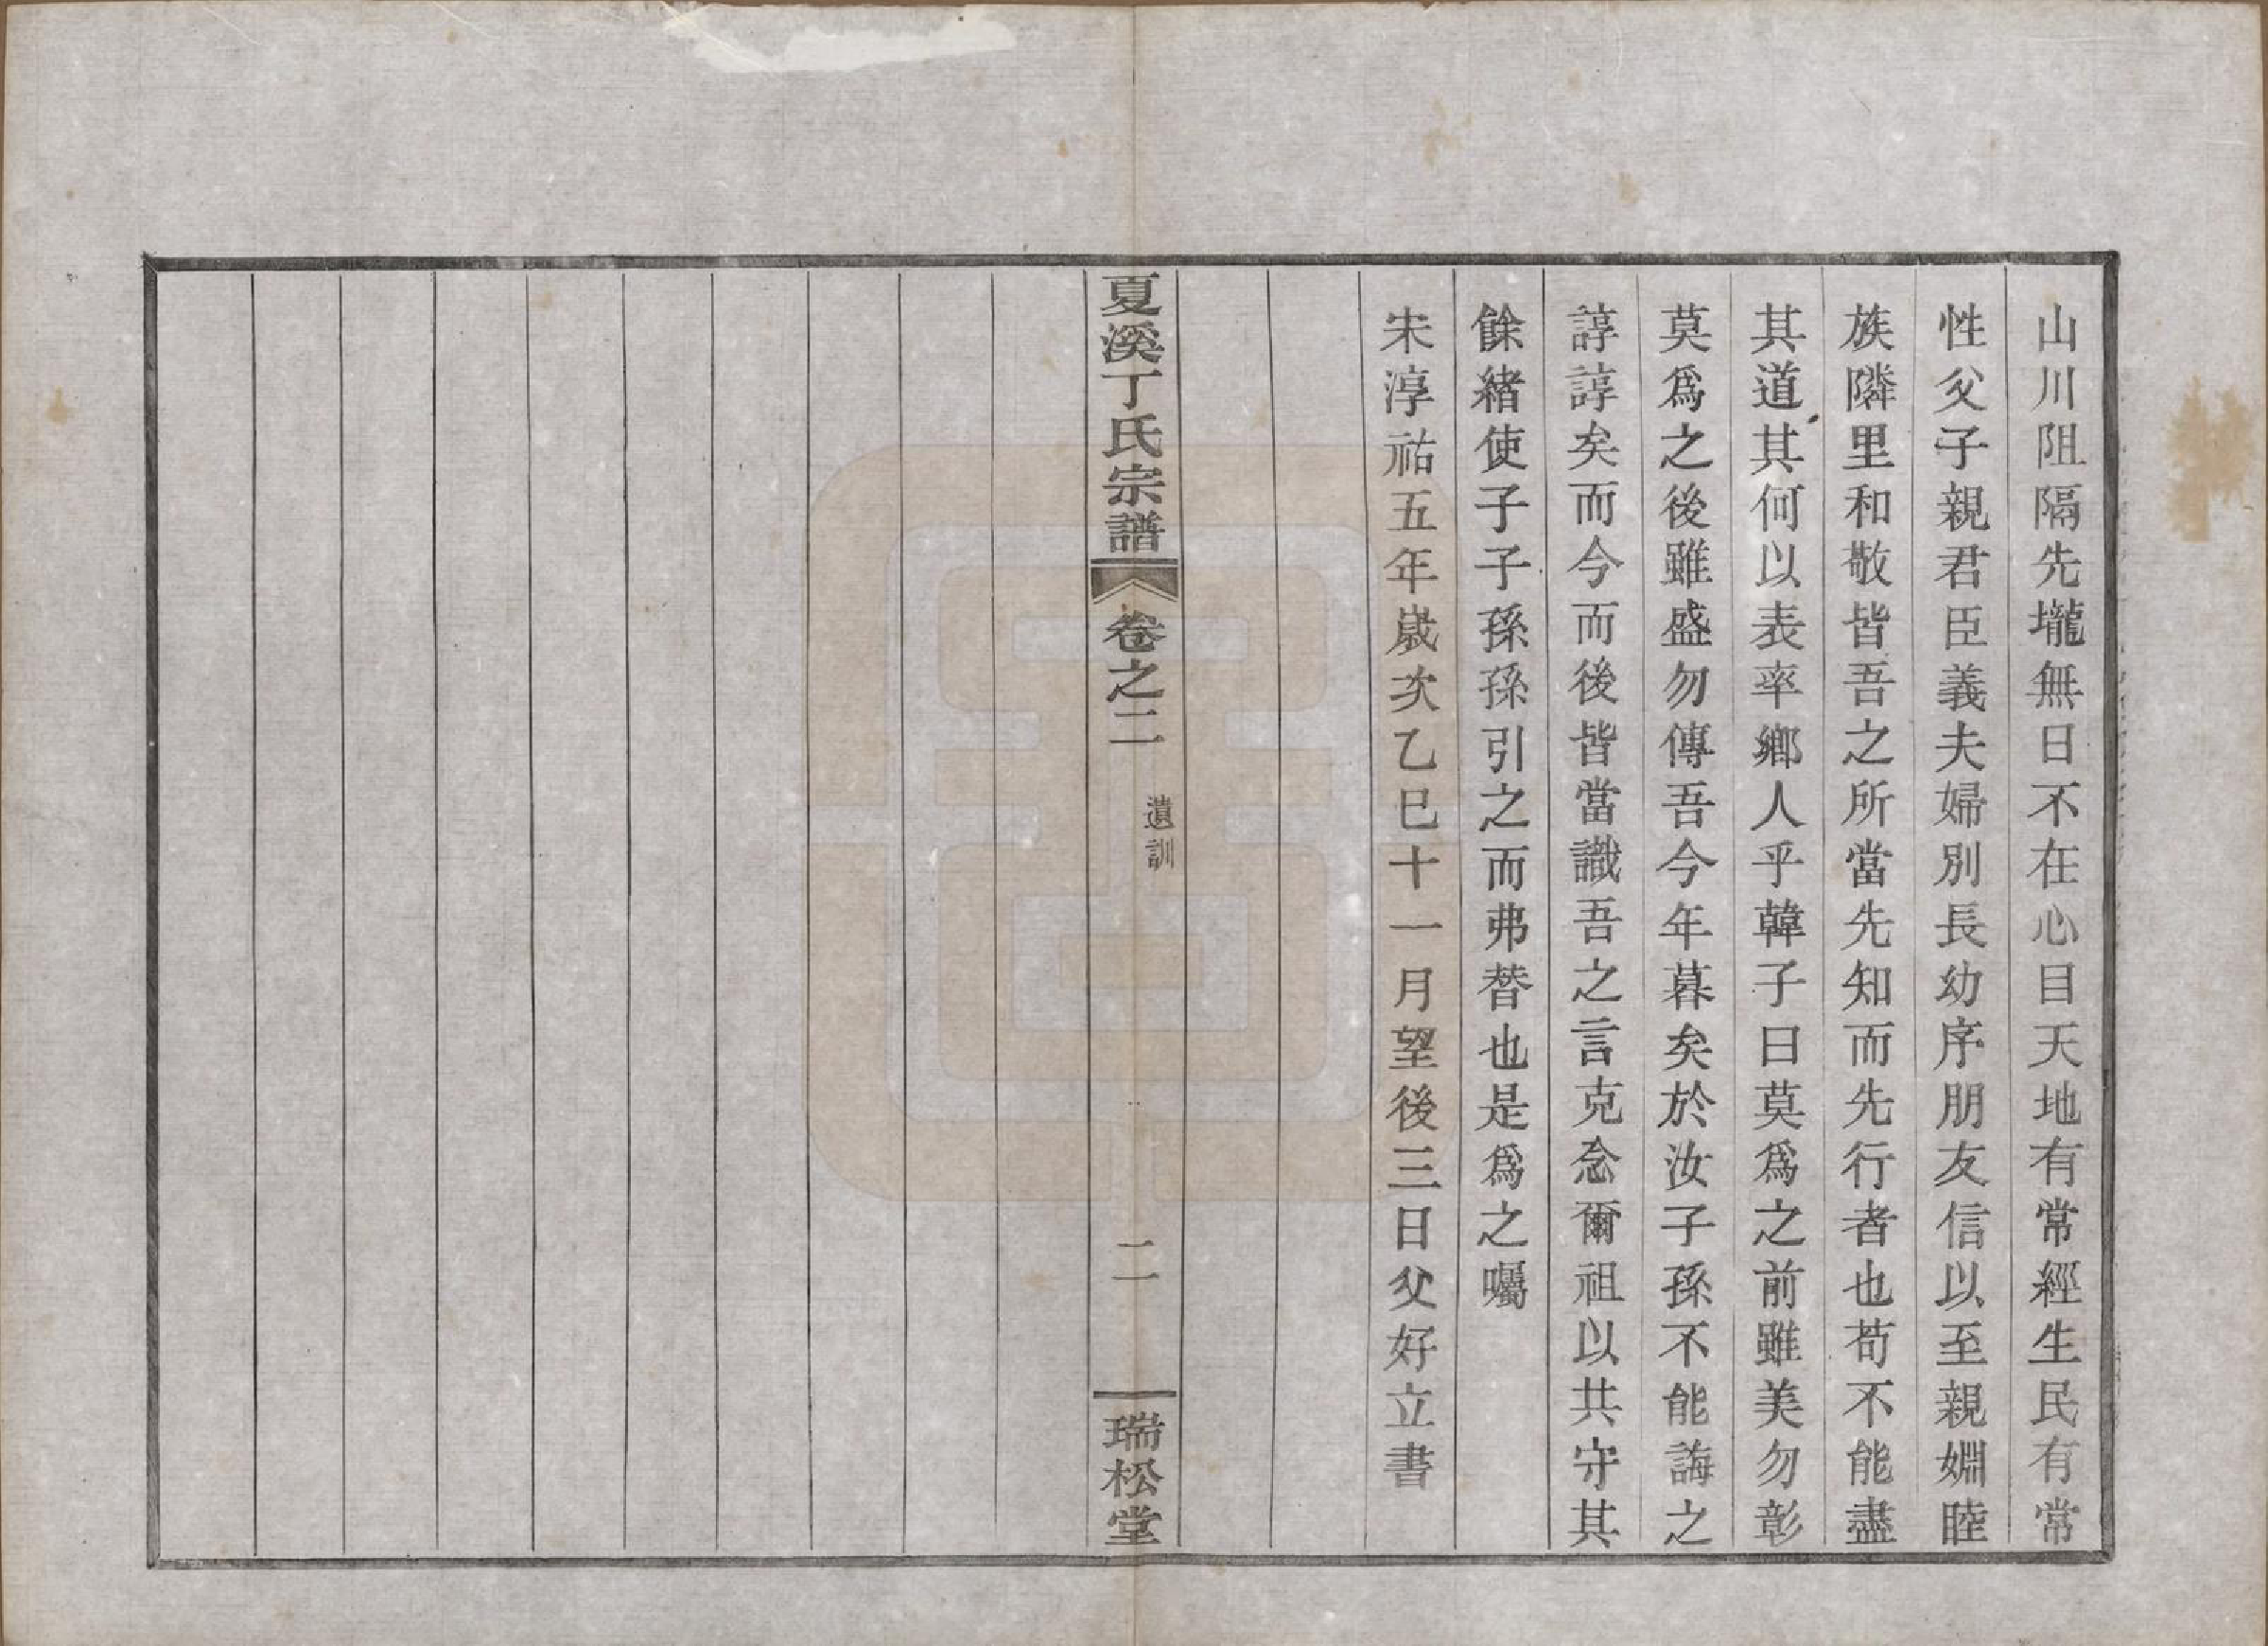 山川阻隔先壠無日不在心目天地有常經生民有常
性父子親君臣義夫婦別長幼序朋友信以至親婣睦
族隣里和敬皆吾之所當先知而先行者也苟不能盡
其道其何以表率鄉人乎韓子曰莫爲之前雖美勿彰
莫爲之後雖盛勿傳吾今年暮矣於汝子孫不能誨之
諄諄矣而今而後皆當識吾之言克念爾祖以共守其
餘緖使子子孫孫引之而弗替也是爲之囑
宋淳祐五年歲次乙巳十一月望後三日父好立書
夏溪丁氏宗譜 卷之二 遺訓 二 瑞松堂